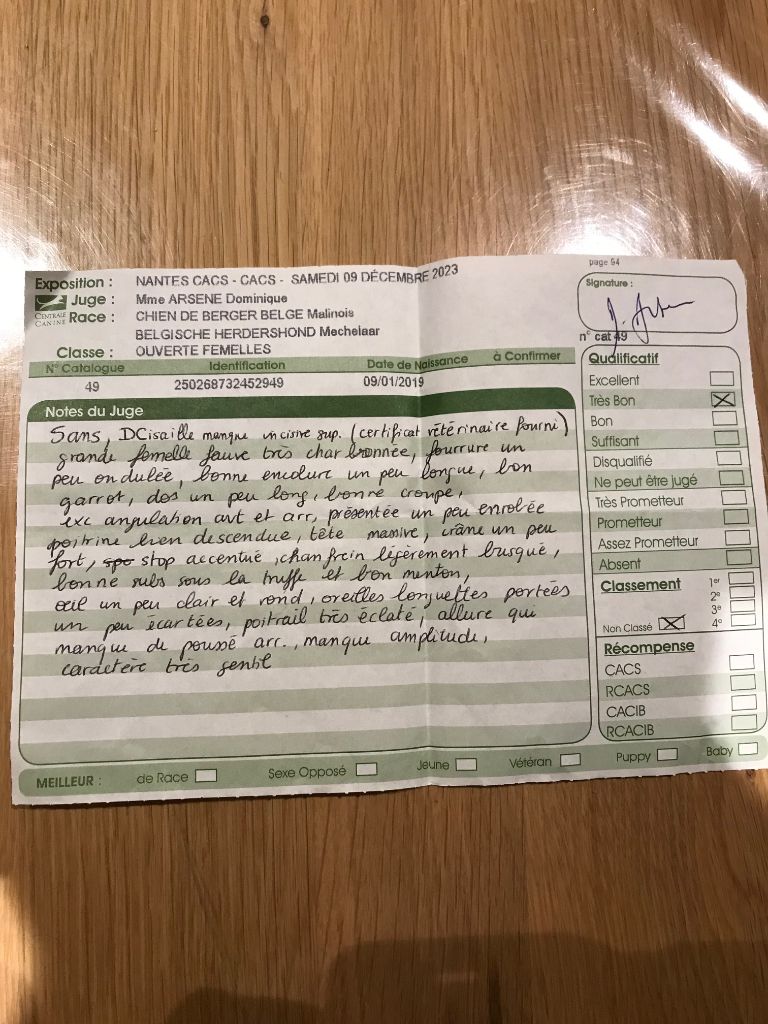 page 94
Exposition : NANTES CACS - CACS - SAMEDI 09 DÉCEMBRE 2023
Signature :
CENTRALE CANINE
Juge : Mme ARSENE Dominique
Race : CHIEN DE BERGER BELGE Malinois
BELGISCHE HERDERSHOND Mechelaar
n° cat 49
Classe : OUVERTE FEMELLES
N° Catalogue Identification Date de Naissance à Confirmer
49 250268732452949 09/01/2019
Notes du Juge
Sans, DCisaille manque incisive sup. (certificat vétérinaire fourni)
grande femelle fauve très charbonnée, fourrure un
peu ondulée, bonne encolure un peu longue, bon
garrot, dos un peu long, bonne croupe,
exc angulation avt et arr, présentée un peu enrobée
poitrine bien descendue, tête massive, crâne un peu
fort, stop accentué, chanfrein légèrement busqué,
bonne subs sous la truffe et bon menton,
oeil un peu clair et rond, oreilles longuettes portées
un peu écartées, poitrail très éclaté, allure qui
manque de poussé arr., manque amplitude,
caractère très gentil
Qualificatif
Excellent
Très Bon
Bon
Suffisant
Disqualifié
Ne peut être jugé
Très Prometteur
Prometteur
Assez Prometteur
Absent
Classement 1er
2e
3e
Non Classé 4e
Récompense
CACS
RCACS
CACIB
RCACIB
MEILLEUR : de Race Sexe Opposé Jeune Vétéran Puppy Baby